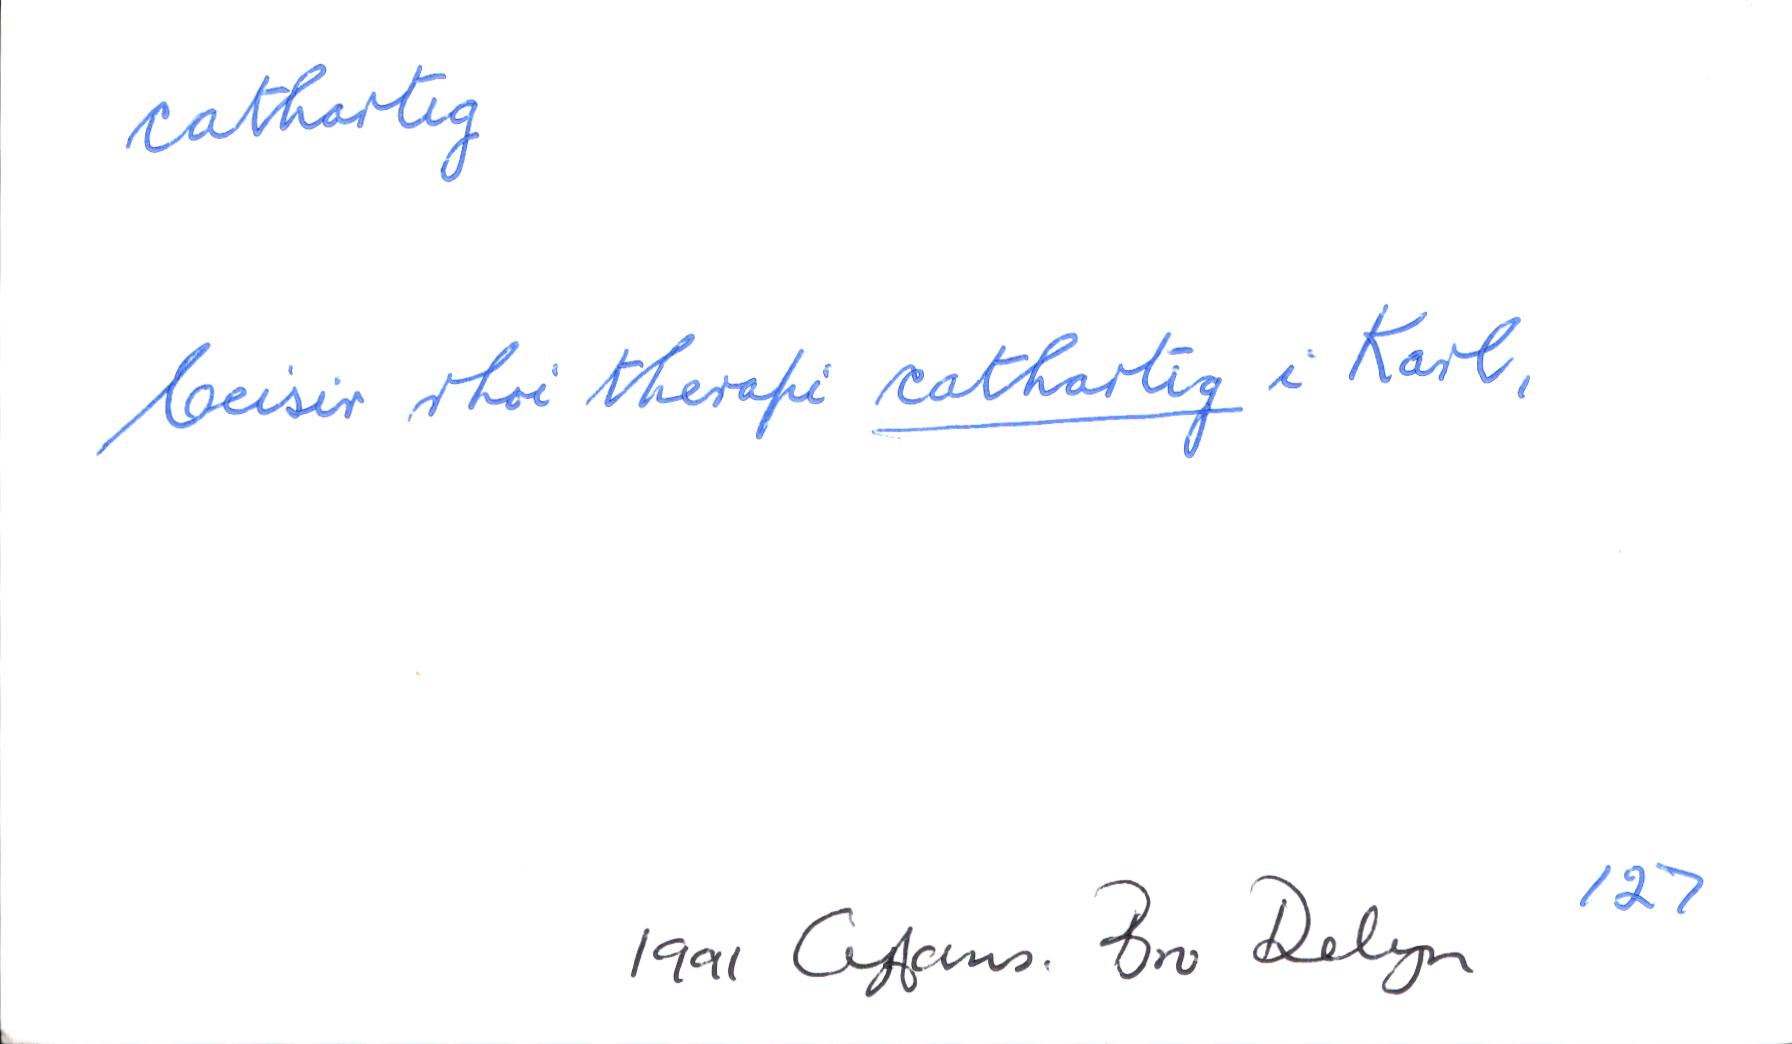 cathartig
Ceisir rhoi therapi cathartig i Karl,
127
1991 Cyfans. Bro Delyn